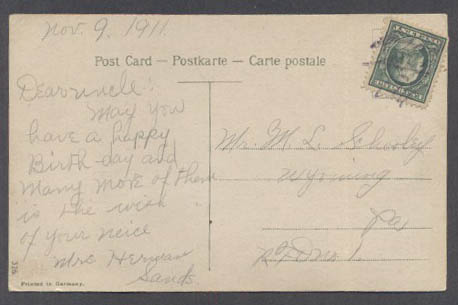 Nov. 9, 1911.
Post Card — Postkarte — Carte postale
Dear uncle:
May you
have a happy
Birth day and
Many more of them
is the wish
of your neice
Mrs Herman
Sands
Mr. M. L.
Wyoming
Pa
R F D no 1.
Printed in Germany.